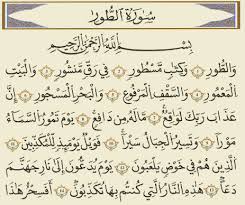 سُورَةُ الطُّورِ
بِسْمِ اللَّهِ الرَّحْمَٰنِ الرَّحِيمِ
وَالطُّورِ ١ وَكِتَابٍ مَّسْطُورٍ ٢ فِي رَقٍّ مَّنشُورٍ ٣ وَالْبَيْتِ
الْمَعْمُورِ ٤ وَالسَّقْفِ الْمَرْفُوعِ ٥ وَالْبَحْرِ الْمَسْجُورِ ٦ إِنَّ
عَذَابَ رَبِّكَ لَوَاقِعٌ ٧ مَّا لَهُ مِن دَافِعٍ ٨ يَوْمَ تَمُورُ السَّمَاءُ
مَوْرًا ٩ وَتَسِيرُ الْجِبَالُ سَيْرًا ١٠ فَوَيْلٌ يَوْمَئِذٍ لِّلْمُكَذِّبِينَ ١١
الَّذِينَ هُمْ فِي خَوْضٍ يَلْعَبُونَ ١٢ يَوْمَ يُدَعُّونَ إِلَىٰ نَارِ جَهَنَّمَ
دَعًّا ١٣ هَٰذِهِ النَّارُ الَّتِي كُنتُم بِهَا تُكَذِّبُونَ ١٤ أَفَسِحْرٌ هَٰذَا